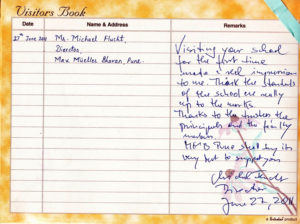 Visitors Book
Date Name & Address Remarks
27th June 2011 Mr. Michael Flucht,
Director,
Max Mueller Bhavan, Pune.
Visiting your school
for the first time
made a real impression
to me. Thank the standards
of the school are really
up to the marks.
Thanks to the trustees the
principals and the faculty
members.
MMB Pune shall try its
very best to support you.
Director
June 27, 2011